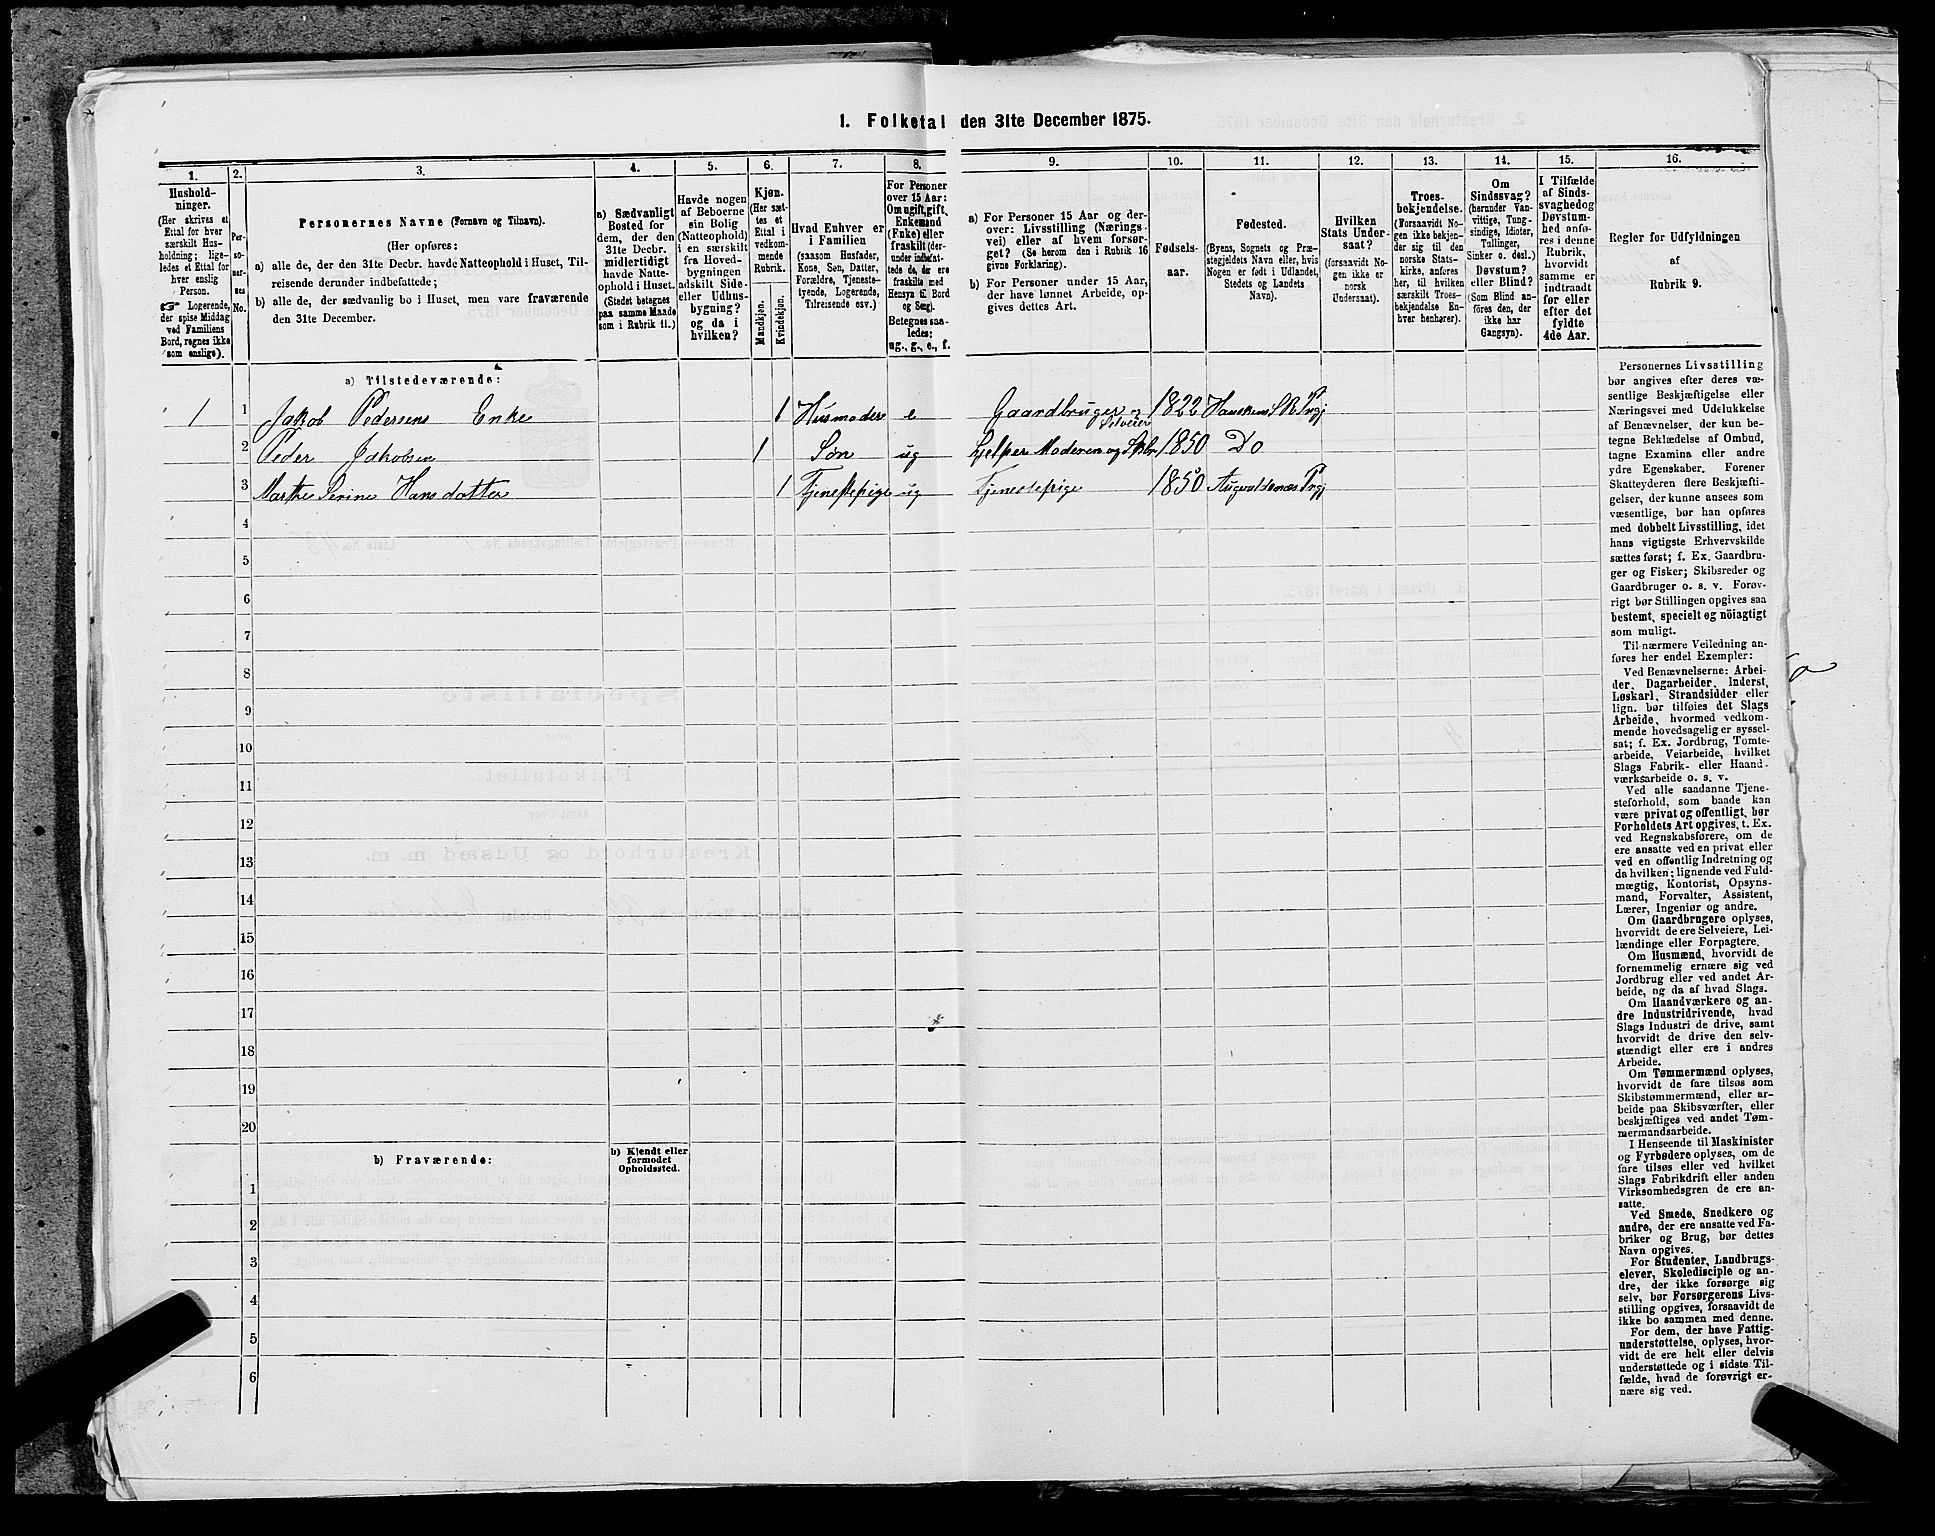 1. Folketal den 31te December 1875.
1.
2.
3.
4.
5.
6.
7.
8.
9.
10.
11.
12.
13.
14.
15.
16.
Hushold-
ninger.
(Her skrives et
Ettal for hver
særskilt Hus-
holdning; lige-
ledes et Ettal for
hver enslig
Person.
☞ Logerende,
der spise Middag
ved Familiens
Bord, regnes ikke
som enslige).
Per-
so-
ner-
nes
No.
Personernes Navne (Fornavn og Tilnavn).
(Her opføres:
a) alle de, der den 31te Decbr. havde Natteophold i Huset, Til-
reisende derunder indbefattede;
b) alle de, der sædvanlig bo i Huset, men vare fraværende
den 31te December.
a) Sædvanligt
Bosted for
dem, der den
31te Decbr.
midlertidigt
havde Natte-
ophold i Huset.
(Stedet betegnes
paa samme Maade
som i Rubrik 11.)
Havde nogen
af Beboerne
sin Bolig
(Natteophold)
i en særskilt
fra Hoved-
bygningen
adskilt Side-
eller Udhus-
bygning?
og da i
hvilken?
Kjøn.
(Her sæt-
tes et
Ettal i
vedkom-
mende
Rubrik.
Mandkjøn.
Kvindekjøn.
Hvad Enhver er
i Familien
(saasom Husfader,
Kone, Søn, Datter,
Forældre, Tjeneste-
tyende, Logerende,
Tilreisende osv.)
For Personer
over 15 Aar:
Om ugift, gift,
Enkemand
(Enke) eller
fraskilt (der-
under indbefat-
tede de, der ere
fraskilte med
Hensyn til Bord
og Seng).
Betegnes saa-
ledes:
ug., g., e., f.
a) For Personer 15 Aar og der-
over: Livsstilling (Nærings-
vei) eller af hvem forsør-
get? (Se herom den i Rubrik 16
givne Forklaring).
b) For Personer under 15 Aar,
der have lønnet Arbeide, op-
gives dettes Art.
Fødsels-
aar.
Fødested.
(Byens, Sognets og Præ-
stegjeldets Navn eller, hvis
Nogen er født i Udlandet,
Stedets og Landets
Navn).
Hvilken
Stats Under-
saat?
(forsaavidt No-
gen ikke er
norsk
Undersaat).
Troes-
bekjendelse.
(Forsaavidt No-
gen ikke bekjen-
der sig til den
norske Stats-
kirke, anføres
her, til hvilken
særskilt Troes-
bekjendelse En-
hver henhører).
Om
Sindssvag?
(herunder Van-
vittige, Tung-
sindige, Idioter,
Tullinger,
Sinker o. desl.)
Døvstum?
eller Blind?
(Som Blind an-
føres den, der
ikke har
Gangsyn).
I Tilfælde
af Sinds-
svaghed og
Døvstum-
hed anfø-
res i denne
Rubrik,
hvorvidt
samme er
indtraadt
før eller
efter det
fyldte
4de Aar.
Regler for Udfyldningen
af
Rubrik 9.
a) Tilstedeværende:
1 1 Jakob Pedersens Enke 1 Husmoder e Gaardbruger og Selveier 1822
2 Peder Jakobsen 1 Søn ug hjelper Moderen og 1850 Do
3 Marthe Serine Hansdatter 1 Tjenestepige ug Tjenestepige 1850 Augvaldsnæs
4
5
6
7
8
9
10
11
12
13
14
15
16
17
18
19
20
b) Fraværende:
b) Kjendt eller
formodet
Opholdssted.
1
2
3
4
5
6
Personernes Livsstilling
bør angives efter deres væ-
sentlige Beskjæftigelse eller
Næringsvei med Udelukkelse
af Benævnelser, der kun be-
tegne Beklædelse af Ombud,
tagne Examina eller andre
ydre Egenskaber. Forener
Skatteyderen flere Beskjæfti-
gelser, der kunne ansees som
væsentlige, bør han opføres
med dobbelt Livsstilling, idet
hans vigtigste Erhvervskilde
sættes først; f. Ex. Gaardbru-
ger og Fisker; Skibsreder og
Gaardbruger o. s. v. Forøv-
rigt bør Stillingen opgives saa
bestemt, specielt og nöiagtigt
som muligt.
Til nærmere Veiledning an-
føres her endel Exempler:
Ved Benævnelserne: Arbei-
der, Dagarbeider, Inderst,
Løskarl, Strandsidder eller
lign. bør tilføies det Slags
Arbeide, hvormed vedkom-
mende hovedsagelig er syssel-
sat; f. Ex. Jordbrug, Tomte-
arbeide, Veiarbeide, hvilket
Slags Fabrik- eller Haand-
værksarbeide o. s. v.
Ved alle saadanne Tjene-
steforhold, som baade kan
være privat og offentligt, bør
Forholdets Art opgives, t. Ex.
ved Regnskabsførere, om de
ere ansatte ved en privat eller
ved en offentlig Indretning og
da hvilken; lignende ved Fuld-
mægtig, Kontorist, Opsyns-
mand, Forvalter, Assistent,
Lærer, Ingeniør og andre.
Om Gaardbrugere oplyses,
hvorvidt de ere Selveiere, Lei-
lændinge eller Forpagtere.
Om Husmænd, hvorvidt de
fornemmelig ernære sig ved
Jordbrug eller ved andet Ar-
beide, og da af hvad Slags.
Om Haandværkere og an-
dre Industridrivende, hvad
Slags Industri de drive, samt
hvorvidt de drive den selv-
stændigt eller ere i andres
Arbeide.
Om Tømmermænd oplyses,
hvorvidt de fare tilsøs som
Skibstømmermænd, eller ar-
beide paa Skibsværfter, eller
beskjæftiges ved andet Tøm-
mermandsarbeide.
I Henseende til Maskinister
og Fyrbødere oplyses, om de
fare tilsøs eller ved hvilket
Slags Fabrikdrift eller anden
Virksomhedsgren de ere an-
satte.
Ved Smede, Snedkere og
andre, der ere ansatte ved Fa-
briker og Brug, bør dettes
Navn opgives.
For Studenter, Landbrugs-
elever, Skoledisciple og an-
dre, der ikke forsørge sig
selv, bør Forsørgerens Livs-
stilling opgives, forsaavidt de
ikke bo sammen med denne.
For dem, der have Fattig-
understøttelse, oplyses, hvor-
vidt de ere helt eller delvis
understøttede og i sidste Til-
fælde, hvad de forøvrigt er-
nære sig ved.